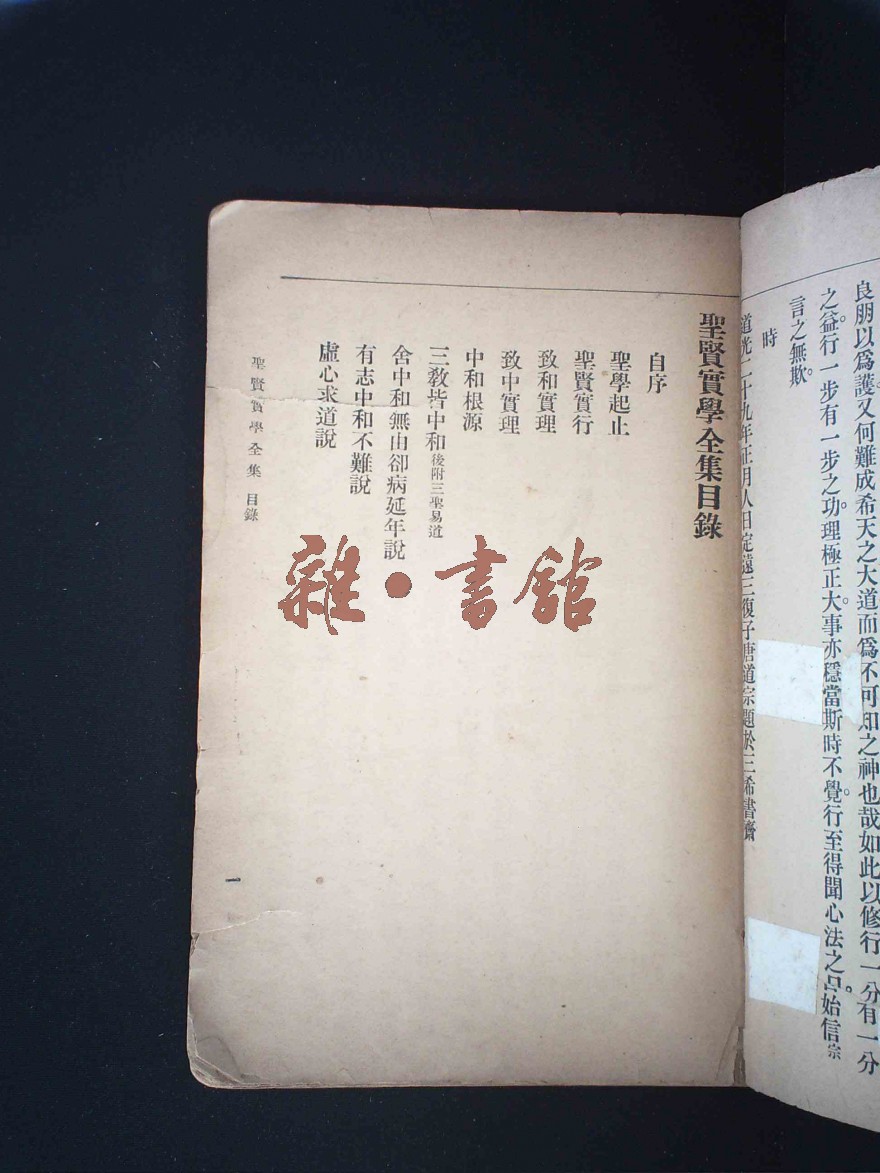 良朋以爲護。又何難成希天之大道而爲不可知之神也哉如此以修行一分有一分
之益。行一步有一步之功。理極正大。事亦穩當斯時不覺。行至得聞心法之日。始信宗
言之無欺。
時
道光二十九年正月人日定遠三復子唐道宗題於三希書齋
聖賢實學全集目錄
自序
聖學起止
聖賢實行
致和實理
致中實理
中和根源
三教皆中和後附三聖易道
舍中和無由卻病延年說
有志中和不難說
虛心求道說
聖賢實學全集 目錄
一
雜·書館